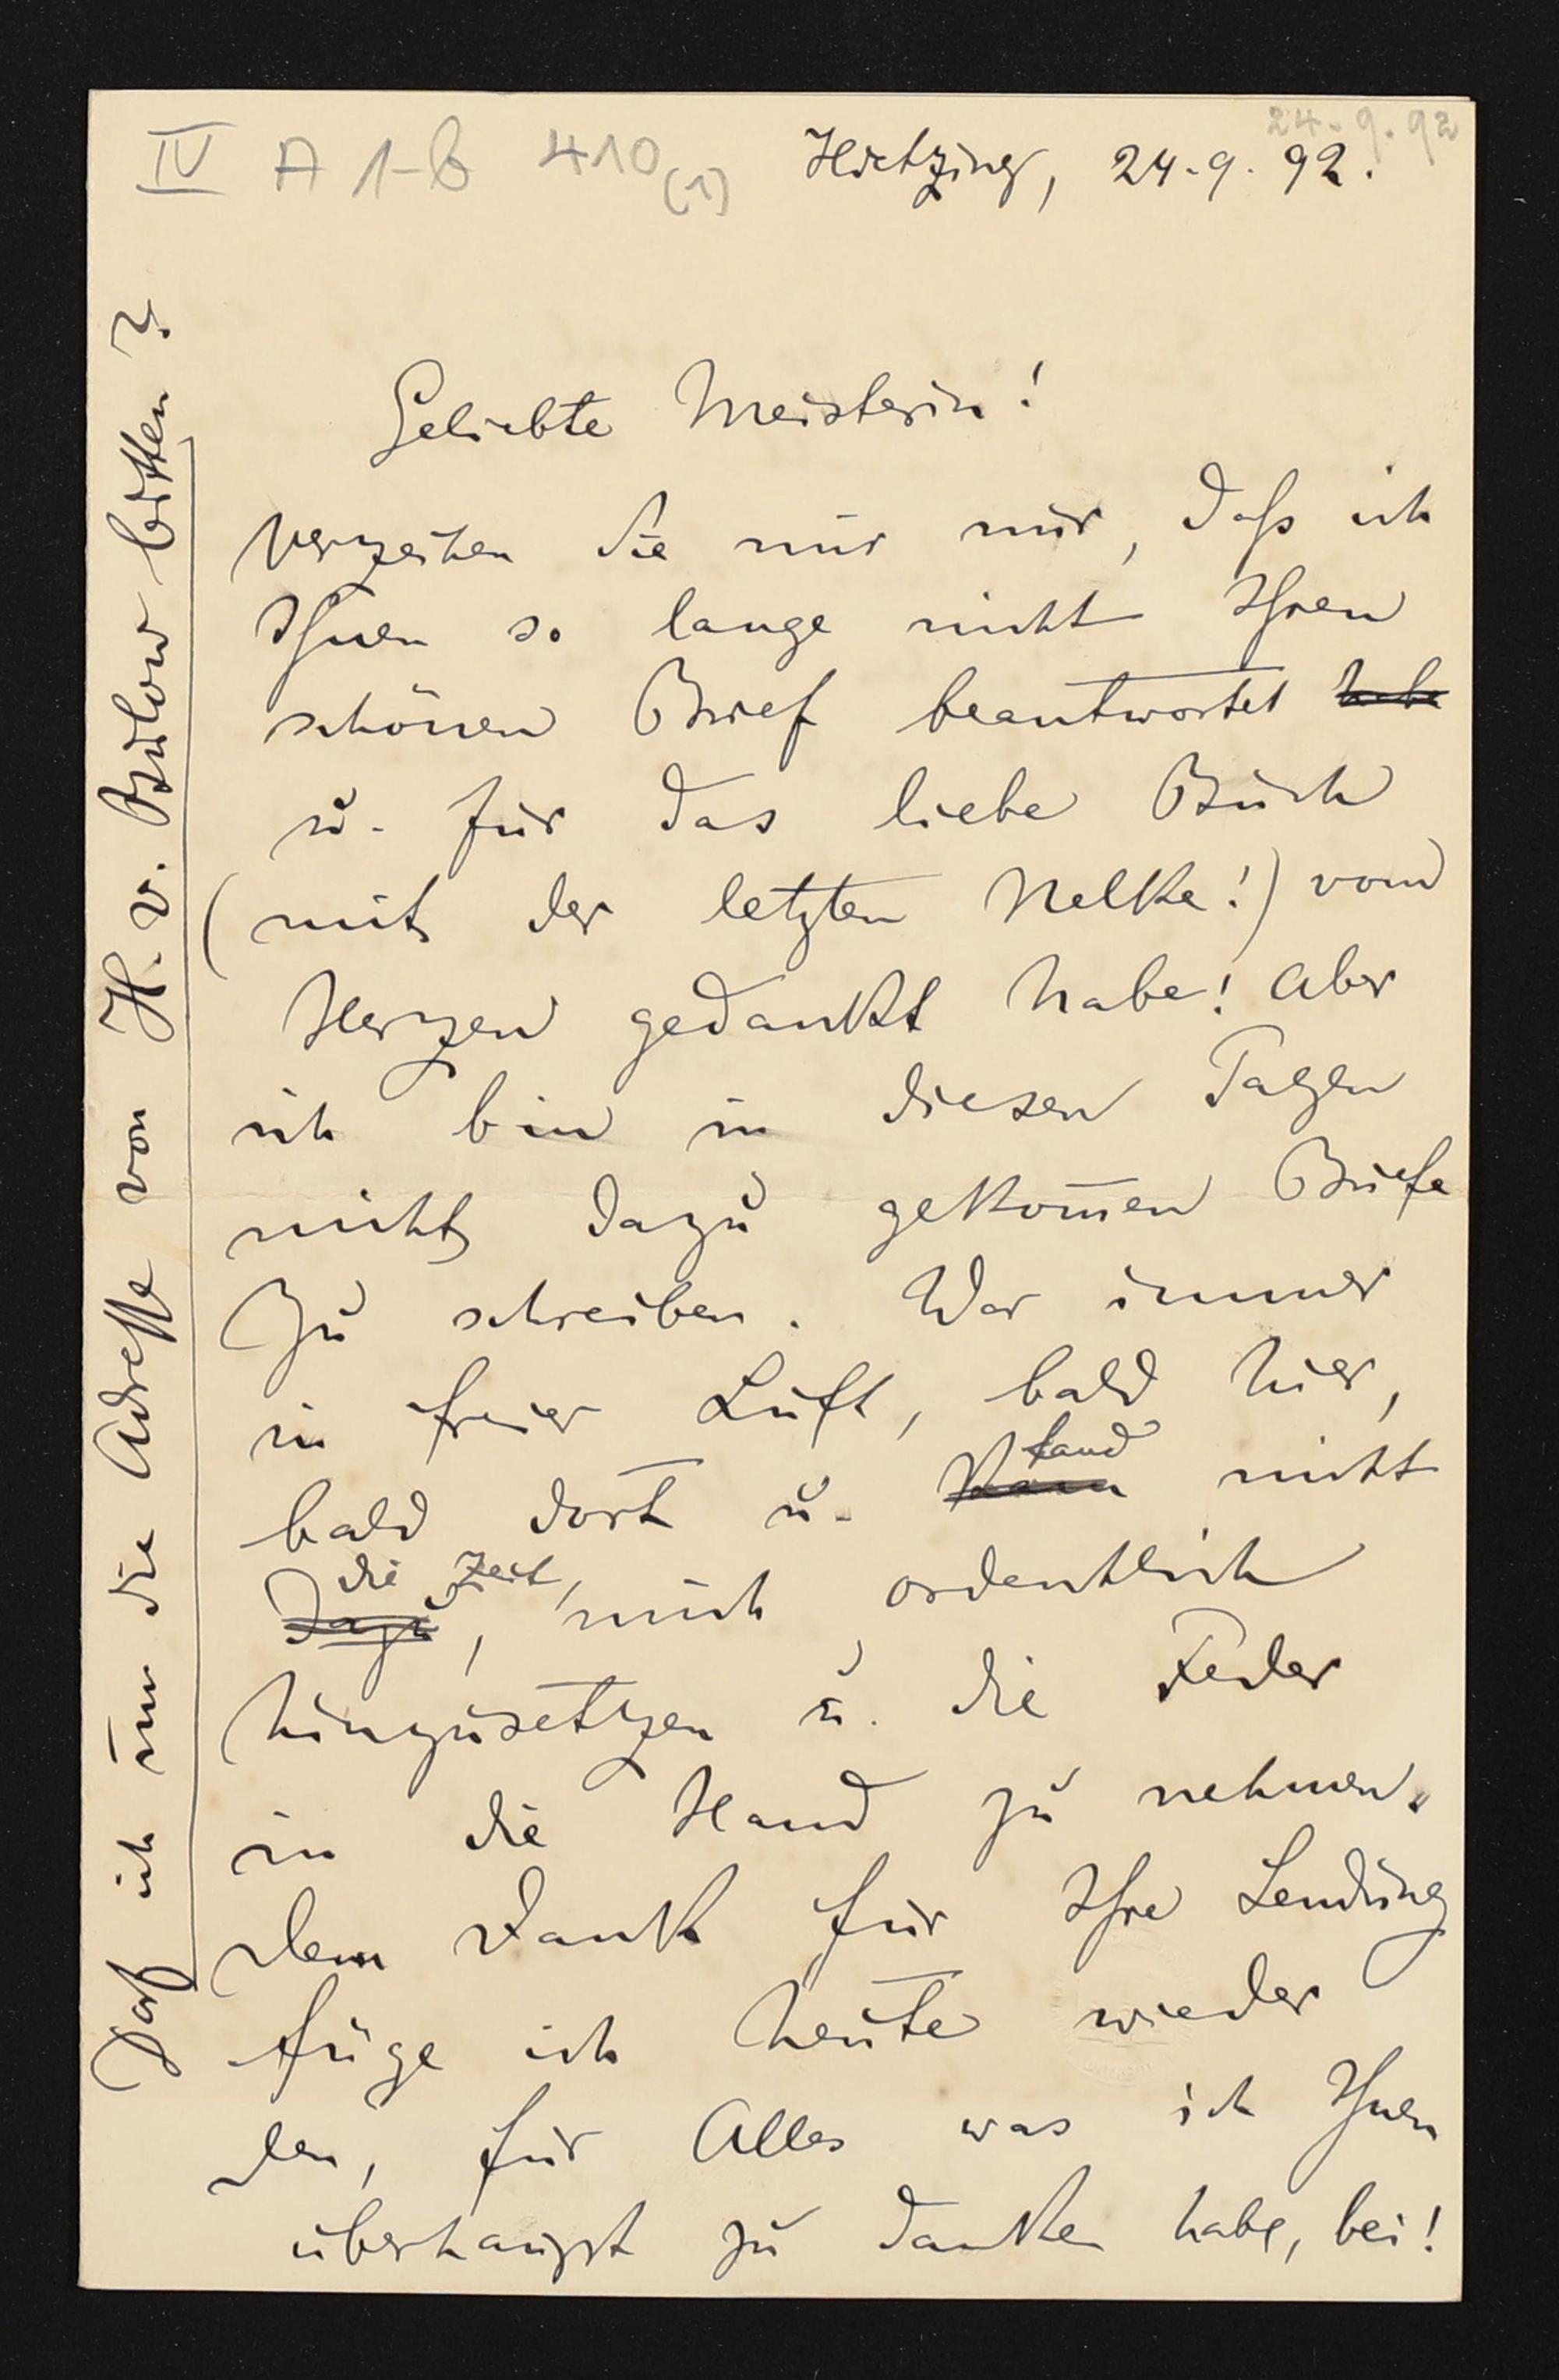 24.9.92
IV A 1-b 410 (1)
Hietzing, 24.9.92.
Geliebte Meisterin!
Verzeihen Sie nur mir, daß ich
Ihnen so lange nicht Ihren
schönen Brief beantwortet habe
u. für das liebe Buch
(mit der letzten Nelke!) vom
Herzen gedankt habe! Aber
ich bin in diesen Tagen
nicht dazu gekom̄en Briefe
zu schreiben. War immer
in freier Luft, bald hier,
bald dort u. kam fand nicht
dazu, die Zeit, mich ordentlich
hinzusetzen u. die Feder
in die Hand zu nehmen.
Dem Dank für Ihre Sendung
füge ich heute wieder
den, für Alles was ich Ihnen
überhaupt zu danken habe, bei!
Darf ich um die Adresse von H. v. Bülow bitten?